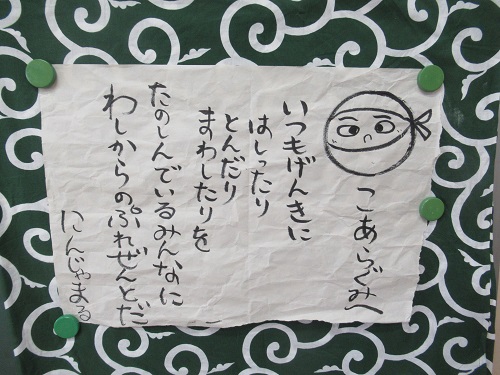 こあらぐみへ
いつもげんきに
はしったり
とんだり
まわしたりを
たのしんでいるみんなに
わしからのぷれぜんとだ
にんじゃまる